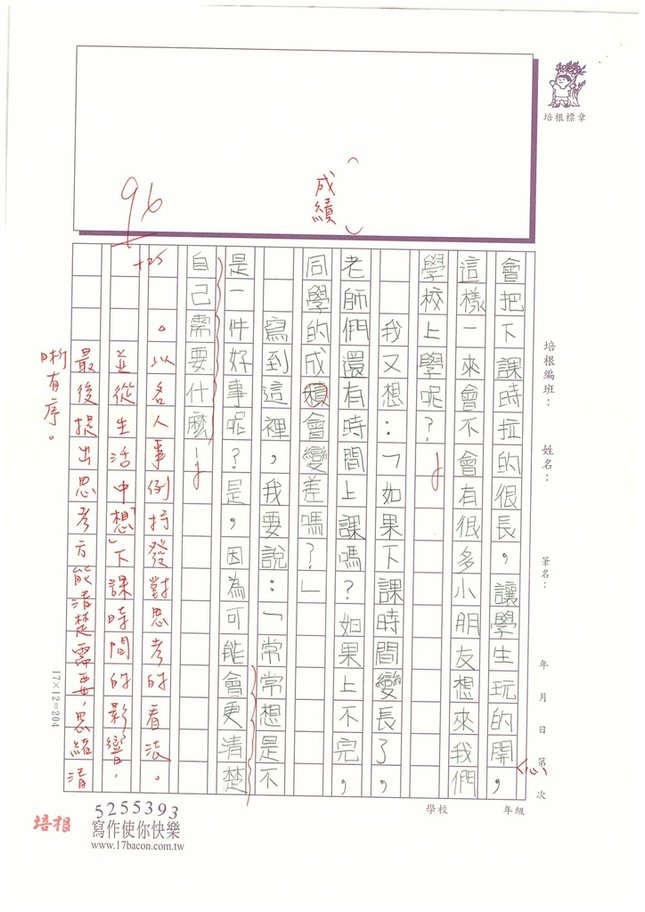 培根標章
成績（ ）
96
+25
培根編班：
姓名：
筆名：
年 月 日 第 次
會把下課時拉的很長，讓學生玩的開，
心
這樣一來會不會有很多小朋友想來我們
學校上學呢？」
我又想：「如果下課時間變長了，
老師們還有時間上課嗎？如果上不完，
同學的成積會變差嗎？」
寫到這裡，我要說：「常常想是不
是一件好事呢？是，因為可能會更清楚
自己需要什麼！」
。以名人事例抒發對思考的看法。
並從生活中「想」下課時間的影響，
最後提出思考方能清楚需要，思緒清
晰有序。
17×12=204
學校 年級
培根
5255393
寫作使你快樂
www.17bacon.com.tw